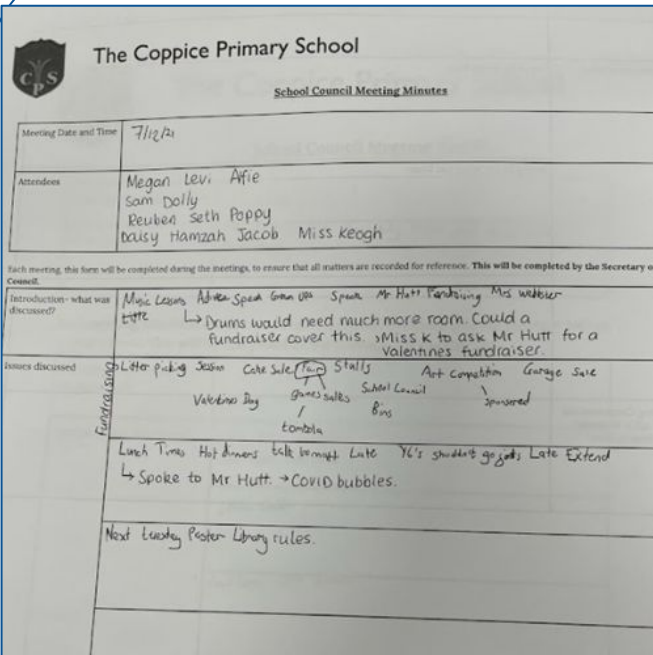 CPS
The Coppice Primary School
School Council Meeting Minutes
Meeting Date and Time
7/12/21
Attendees
Megan Levi Alfie
Sam Dolly
Reuben Seth Poppy
Daisy Hamzah Jacob Miss Keogh
Each meeting, this form will be completed during the meetings, to ensure that all matters are recorded for reference. This will be completed by the Secretary o
Council.
Introduction- what was
discussed?
Music Lessons Speak Grown ups Speak Mr Hutt Fundraising Mrs Webber
↳ Drums would need much more room. Could a
fundraiser cover this. → Miss K to ask Mr Hutt for a
Valentines fundraiser.
Issues discussed
Fundraising
Litter picking Session Cake Sale Fair Stalls Art Competition Garage Sale
Valentines Day games sales School Council Sponsored
Bins
tombola
Lunch Times Hot dinners Late Y6's shouldn't go Late Extend
↳ Spoke to Mr Hutt. → COVID bubbles.
Next tuesday Poster Library rules.